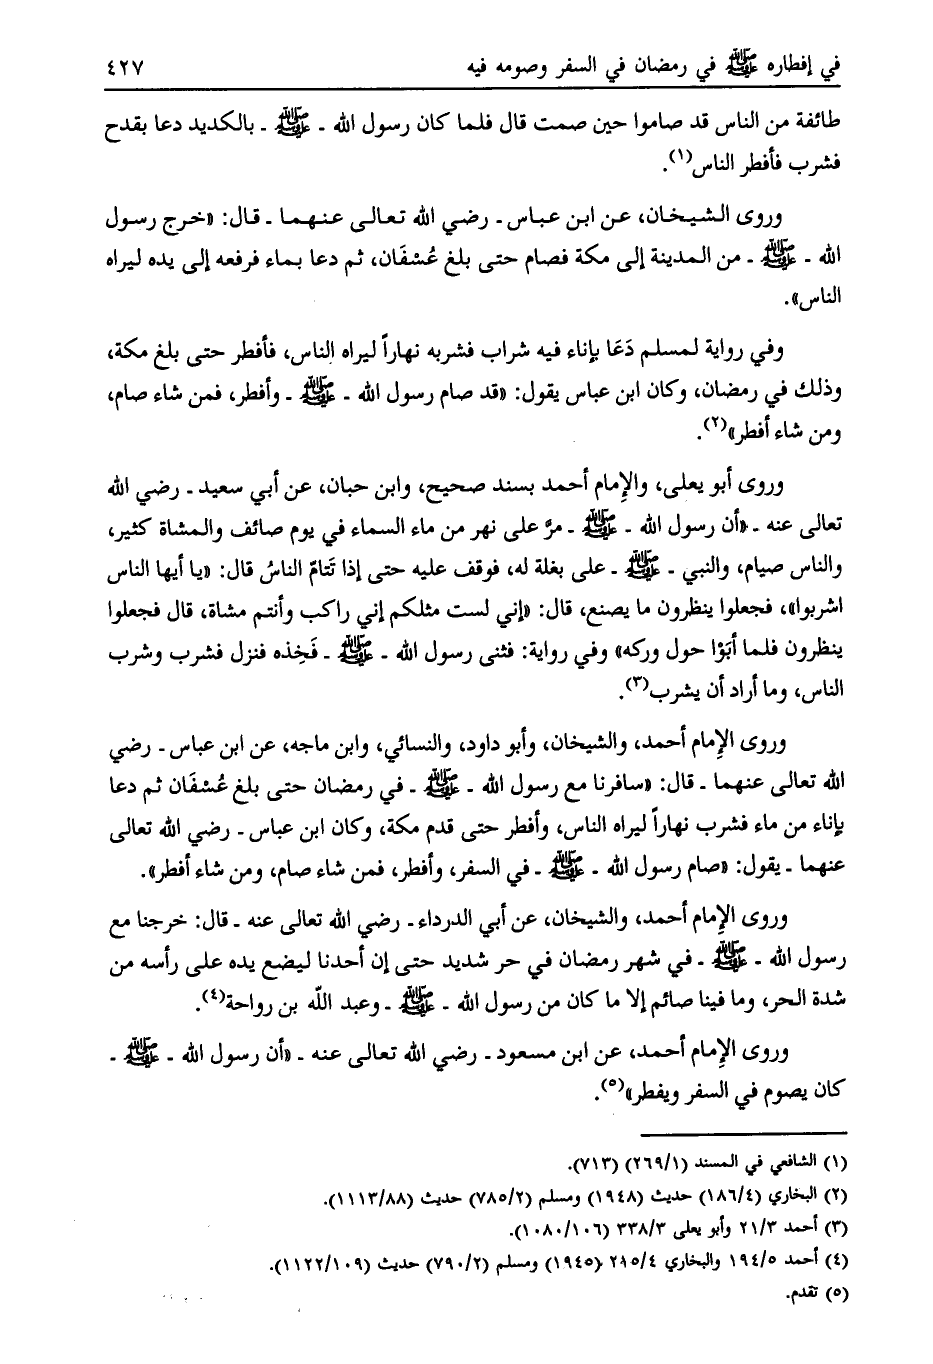 في إفطاره ﷺ في رمضان في السفر وصومه فيه ٤٢٧
طائفة من الناس قد صاموا حين صمت قال فلما كان رسول الله ـ ﷺ ـ بالكديد دعا بقدح
فشرب فأفطر الناس(١).
وروى الشيخان، عن ابن عباس ـ رضي الله تعالى عنهما ـ قال: «خرج رسول
الله ـ ﷺ ـ من المدينة إلى مكة فصام حتى بلغ عُسْفَان، ثم دعا بماء فرفعه إلى يده ليراه
الناس».
وفي رواية لمسلم دَعَا بإناء فيه شراب فشربه نهاراً ليراه الناس، فأفطر حتى بلغ مكة،
وذلك في رمضان، وكان ابن عباس يقول: «قد صام رسول الله ـ ﷺ ـ وأفطر، فمن شاء صام،
ومن شاء أفطر»(٢).
وروى أبو يعلى، والإمام أحمد بسند صحيح، وابن حبان، عن أبي سعيد ـ رضي الله
تعالى عنه ـ «أن رسول الله ـ ﷺ ـ مرَّ على نهر من ماء السماء في يوم صائف والمشاة كثير،
والناس صيام، والنبي ـ ﷺ ـ على بغلة له، فوقف عليه حتى إذا تَتَامّ الناسُ قال: «يا أيها الناس
اشربوا»، فجعلوا ينظرون ما يصنع، قال: «إني لست مثلكم إني راكب وأنتم مشاة، قال فجعلوا
ينظرون فلما أبَوْا حول وركه» وفي رواية: فثنى رسول الله ـ ﷺ ـ فَخِذه فنزل فشرب وشرب
الناس، وما أراد أن يشرب(٣).
وروى الإمام أحمد، والشيخان، وأبو داود، والنسائي، وابن ماجه، عن ابن عباس ـ رضي
الله تعالى عنهما ـ قال: «سافرنا مع رسول الله ـ ﷺ ـ في رمضان حتى بلغ عُسْفَان ثم دعا
بإناء من ماء فشرب نهاراً ليراه الناس، وأفطر حتى قدم مكة، وكان ابن عباس ـ رضي الله تعالى
عنهما ـ يقول: «صام رسول الله ـ ﷺ ـ في السفر، وأفطر، فمن شاء صام، ومن شاء أفطر».
وروى الإمام أحمد، والشيخان، عن أبي الدرداء ـ رضي الله تعالى عنه ـ قال: خرجنا مع
رسول الله ـ ﷺ ـ في شهر رمضان في حر شديد حتى إن أحدنا ليضع يده على رأسه من
شدة الحر، وما فينا صائم إلا ما كان من رسول الله ـ ﷺ ـ وعبد اللّه بن رواحة(٤).
وروى الإمام أحمد، عن ابن مسعود ـ رضي الله تعالى عنه ـ «أن رسول الله ـ ﷺ ـ
كان يصوم في السفر ويفطر»(٥).
(١) الشافعي في المسند (٢٦٩/١) (٧١٣).
(٢) البخاري (١٨٦/٤) حديث (١٩٤٨) ومسلم (٧٨٥/٢) حديث (١١١٣/٨٨).
(٣) أحمد ٢١/٣ وأبو يعلى ٣٣٨/٣ (١٠٨٠/١٠٦).
(٤) أحمد ١٩٤/٥ والبخاري ٢١٥/٤ (١٩٤٥) ومسلم (٧٩٠/٢) حديث (١١٢٢/١٠٩).
(٥) تقدم.